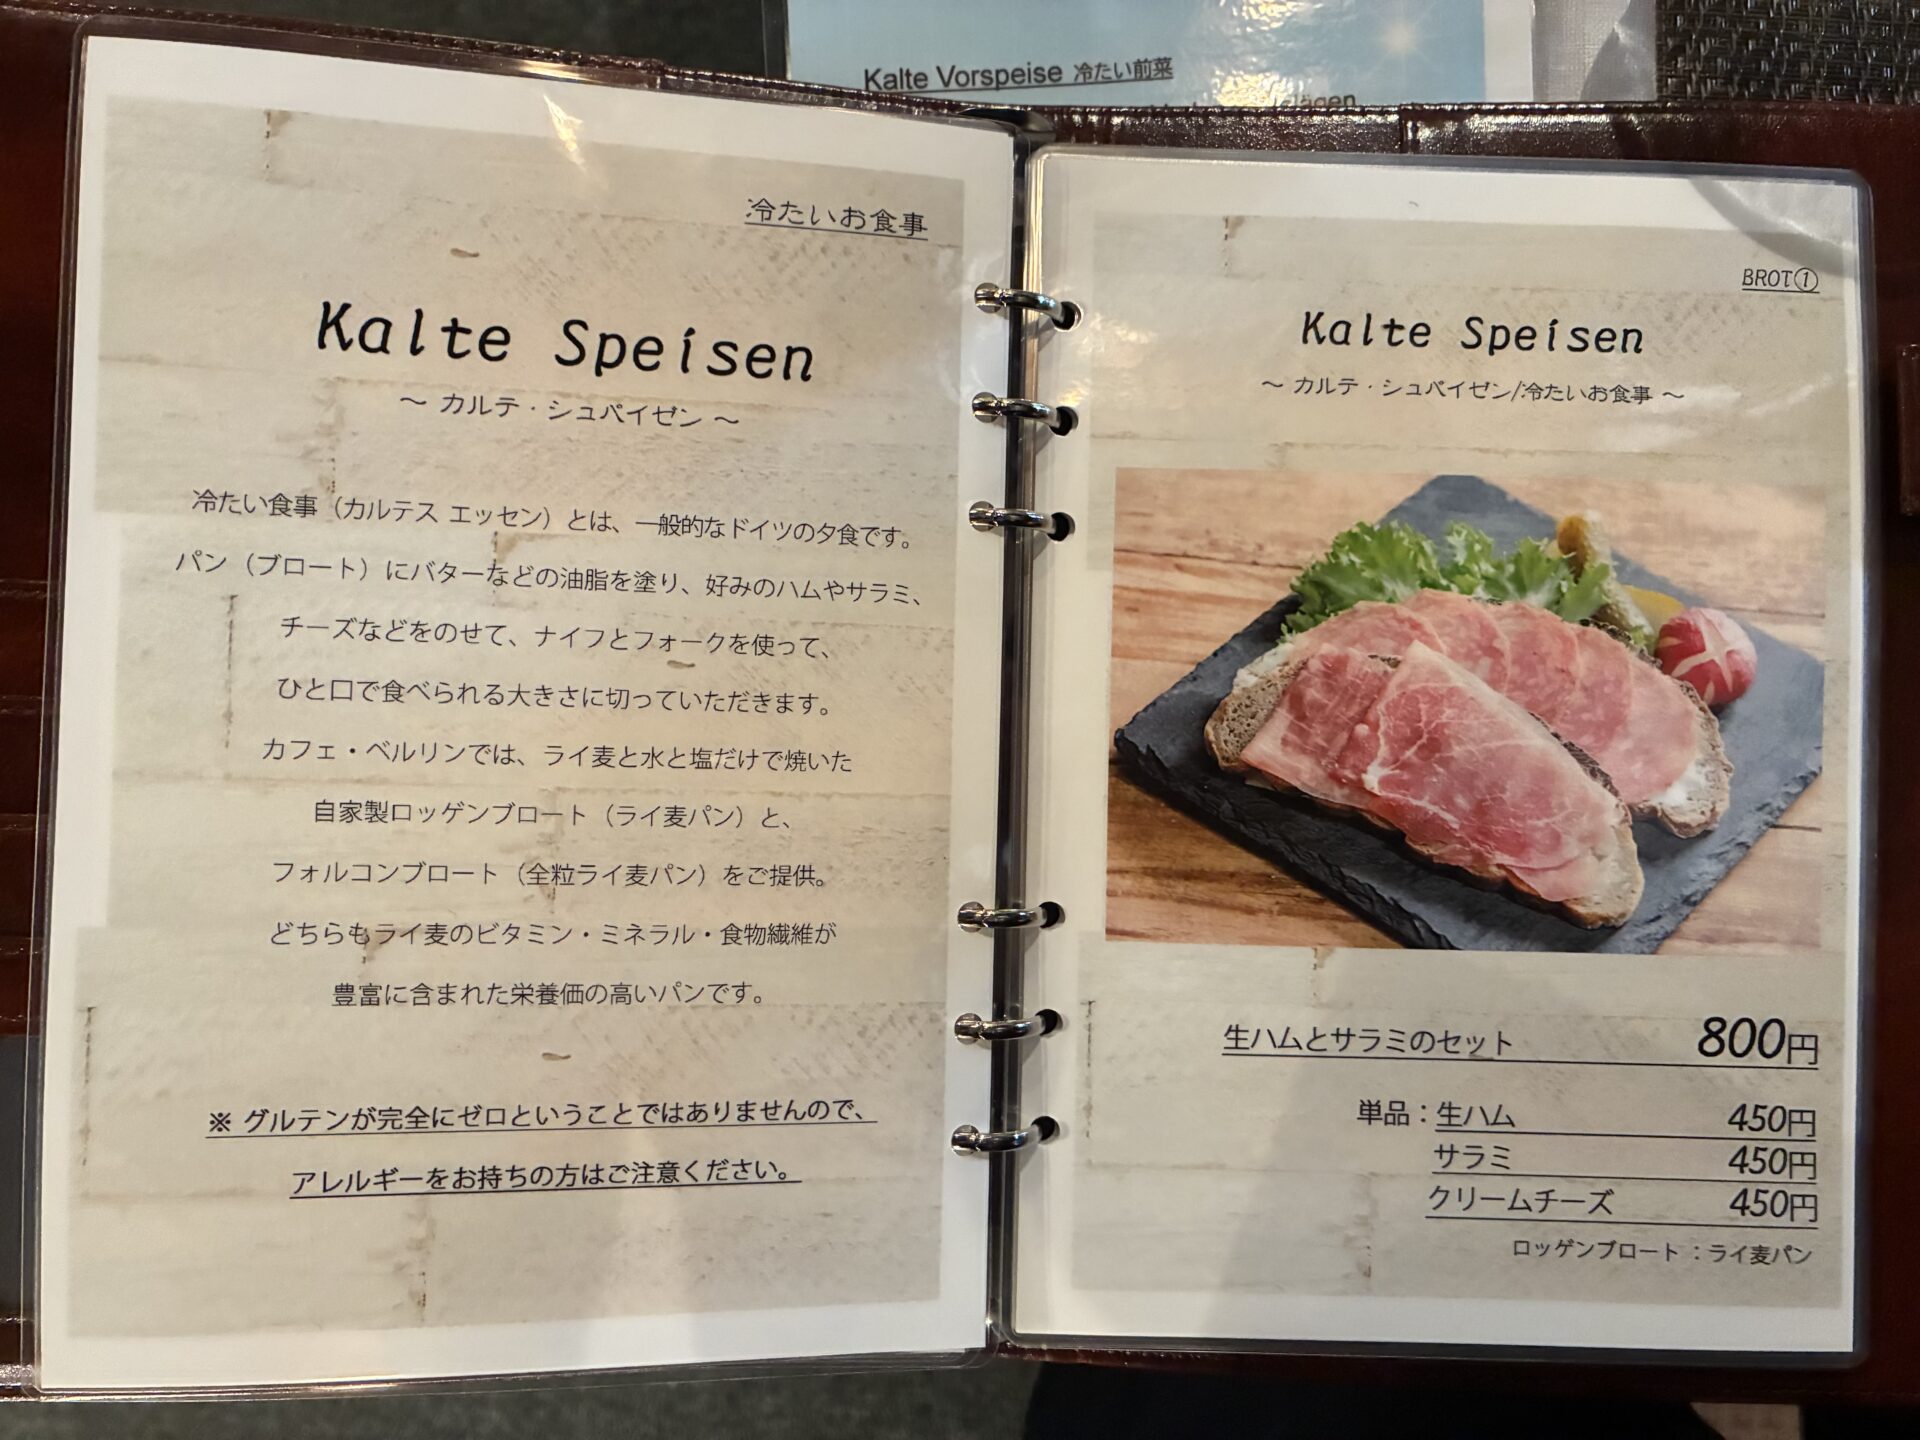 Kalte Vorspeise 冷たい前菜
冷たいお食事
Kalte Speisen
～ カルテ・シュパイゼン ～
冷たい食事（カルテス エッセン）とは、一般的なドイツの夕食です。
パン（ブロート）にバターなどの油脂を塗り、好みのハムやサラミ、
チーズなどをのせて、ナイフとフォークを使って、
ひと口で食べられる大きさに切っていただきます。
カフェ・ベルリンでは、ライ麦と水と塩だけで焼いた
自家製ロッゲンブロート（ライ麦パン）と、
フォルコンブロート（全粒ライ麦パン）をご提供。
どちらもライ麦のビタミン・ミネラル・食物繊維が
豊富に含まれた栄養価の高いパンです。
※ グルテンが完全にゼロということではありませんので、
アレルギーをお持ちの方はご注意ください。
BROT①
Kalte Speisen
～ カルテ・シュパイゼン/冷たいお食事 ～
生ハムとサラミのセット 800円
単品：生ハム 450円
サラミ 450円
クリームチーズ 450円
ロッゲンブロート：ライ麦パン